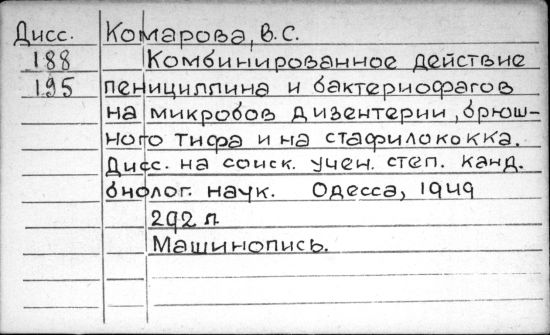 Дисс. Комарова, В.С.
188 Комбинированное действие
195 пенициллина и бактериофагов
на микробов дизентерии, брюш-
ного тифа и на стафилококка.
Дисс. на соиск. учен. степ. канд.
биолог. наук. Одесса, 1949
292 л
Машинопись.